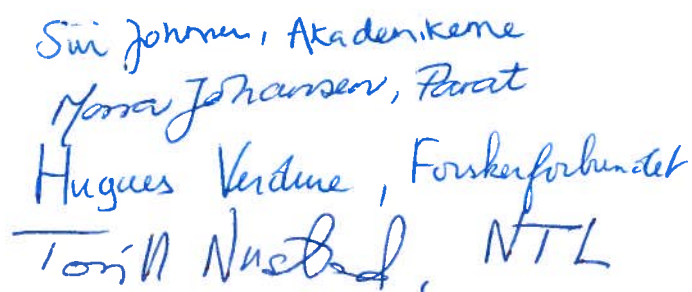 Siri Johnsen, Akademikerne
Johansen, Parat
Hugues Verdure, Forskerforbundet
Torill Nustad, NTL